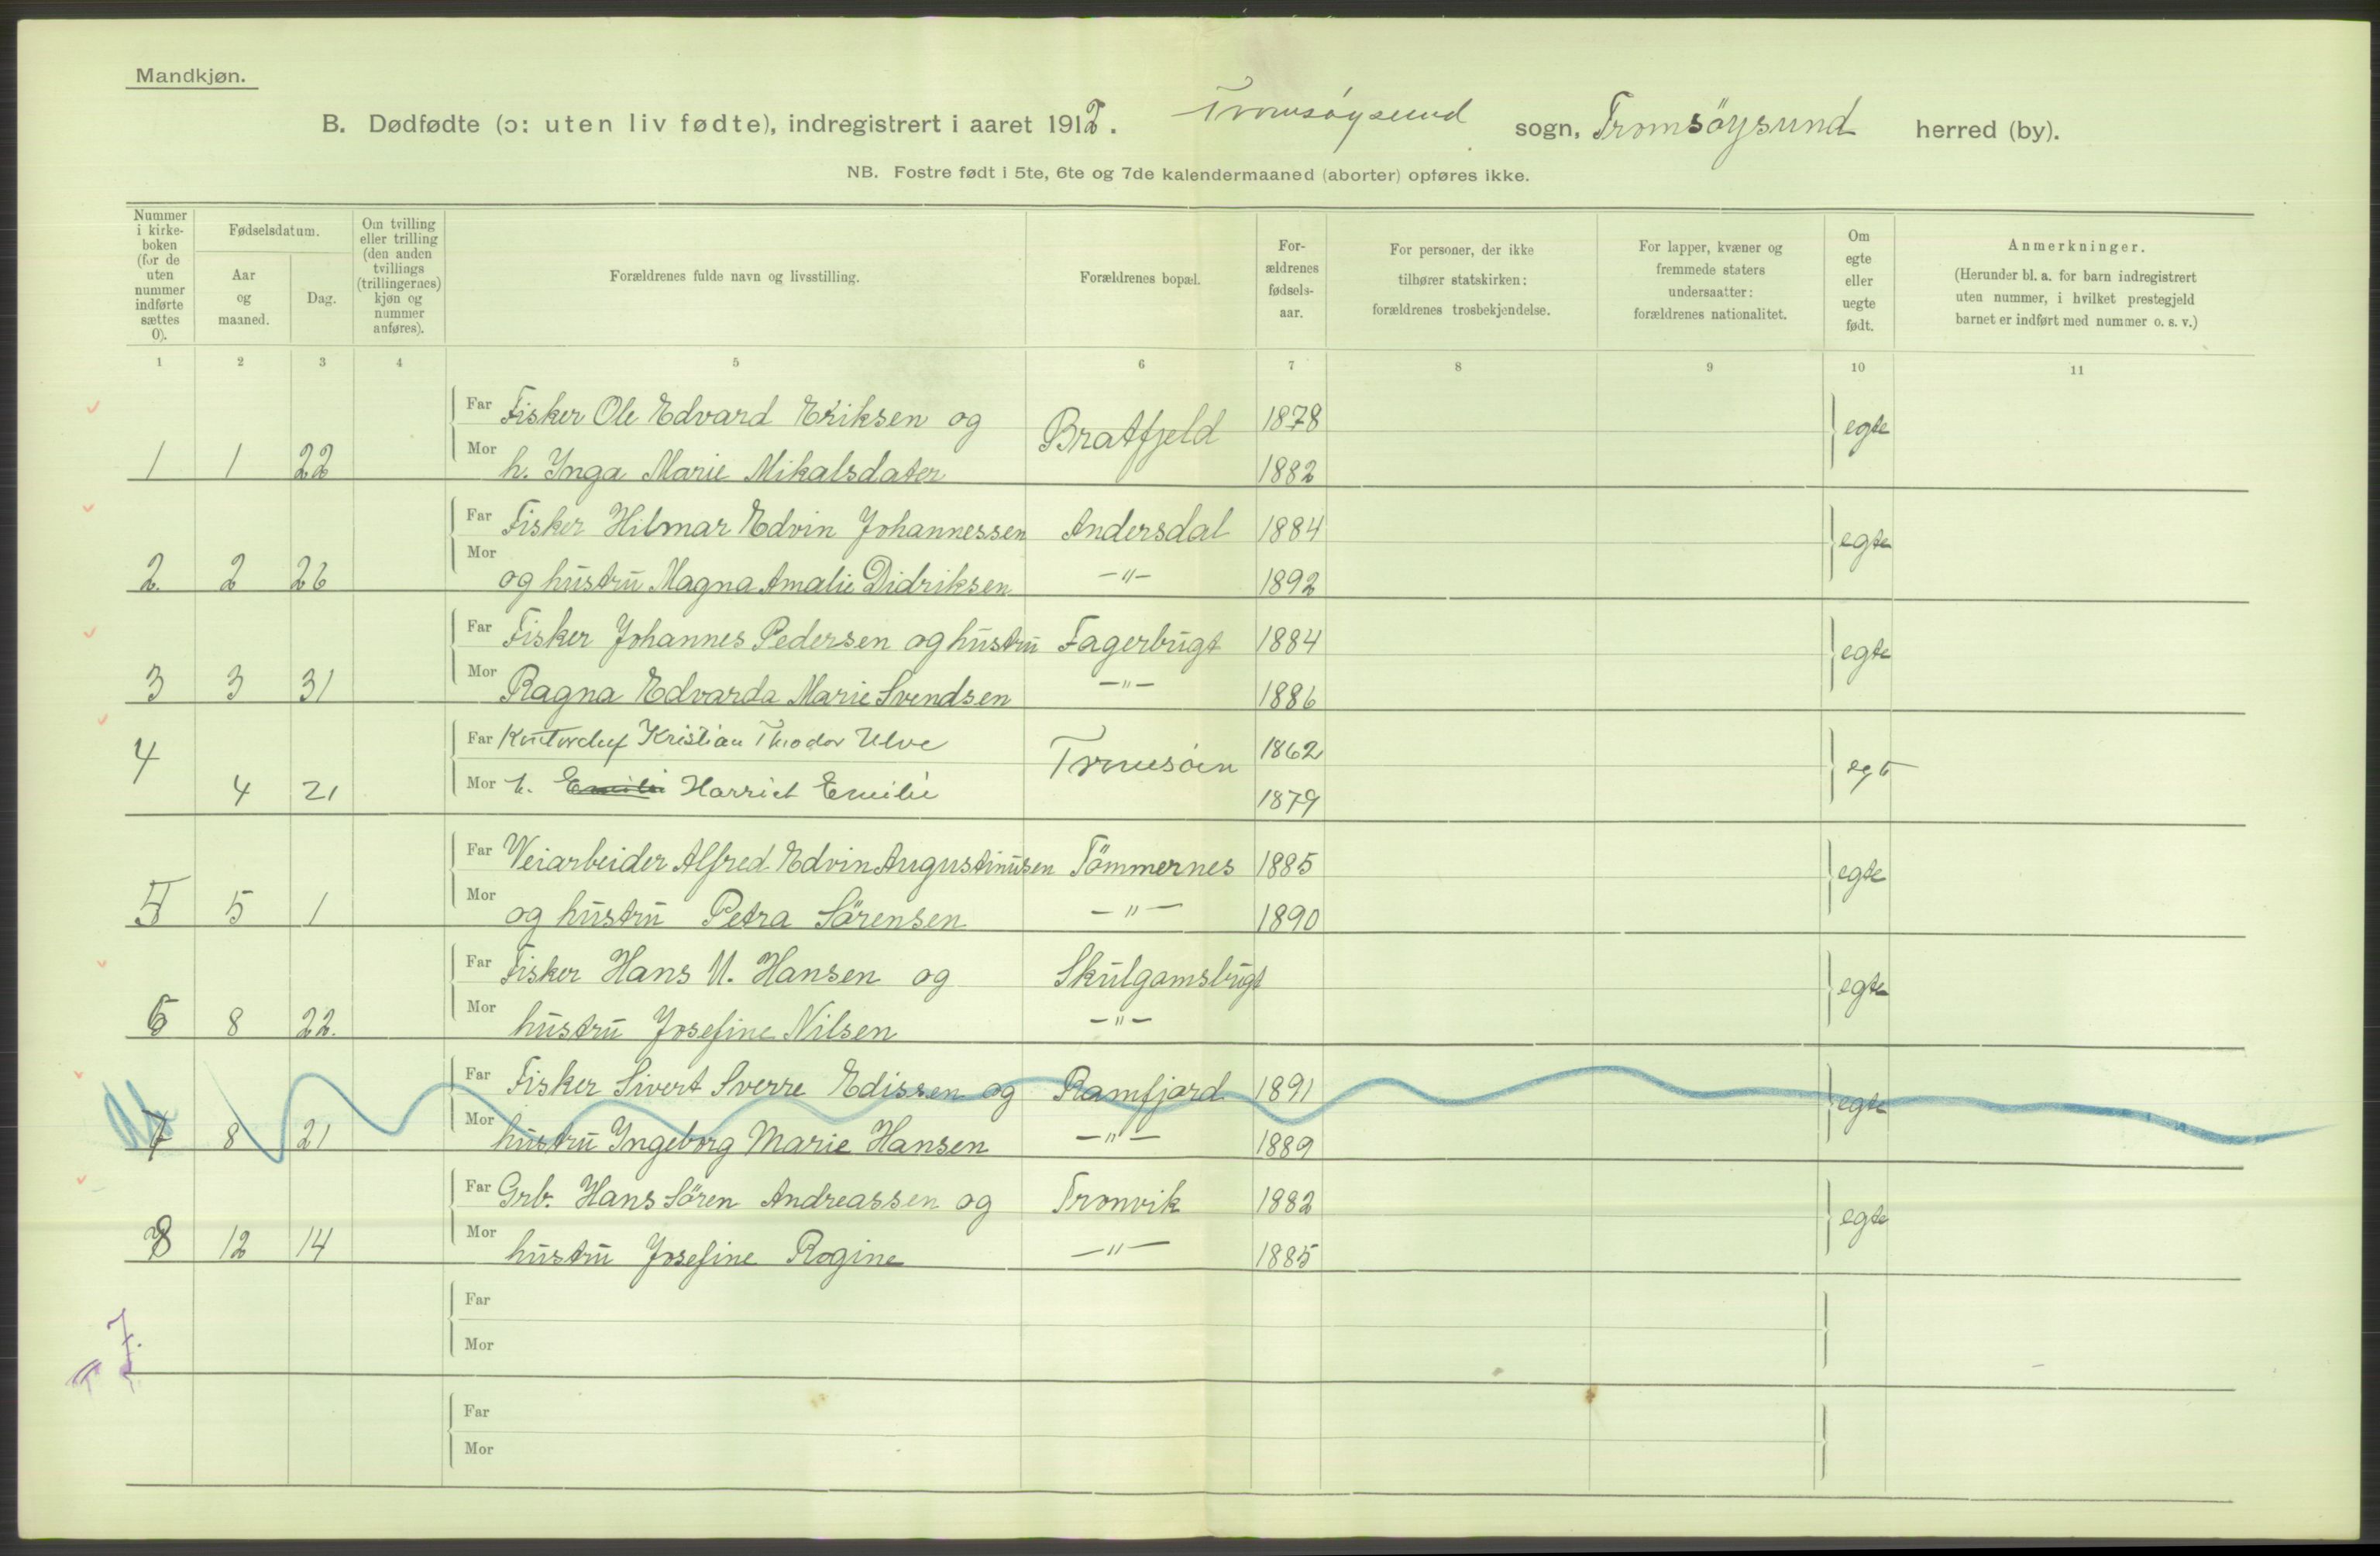 Mandkjøn.
B. Dødfødte (ɔ: uten liv fødte), indregistrert i aaret 1912. Tromsøysund sogn, Tromsöysund herred (by).
NB. Fostre født i 5te, 6te og 7de kalendermaaned (aborter) opføres ikke.
Nummer i kirkeboken (for de uten nummer indførte sættes 0).
Fødselsdatum.
Aar og maaned.
Dag.
Om tvilling eller trilling (den anden tvillings (trillingernes) kjøn og nummer anføres).
Forældrenes fulde navn og livsstilling.
Forældrenes bopæl.
Forældrenes fødselsaar.
For personer, der ikke tilhører statskirken: forældrenes trosbekjendelse.
For lapper, kvæner og fremmede staters undersaatter: forældrenes nationalitet.
Om egte eller uegte født.
Anmerkninger.
(Herunder bl. a. for barn indregistrert uten nummer, i hvilket prestegjeld barnet er indført med nummer o. s. v.)
1 2 3 4 5 6 7 8 9 10 11
Far Fisker Ole Edvard Eriksen og Bratfjeld 1878 egte
1 1 22 Mor h. Inga Marie Mikalsdater 1882
Far Fisker Hilmar Edvin Johannessen Andersdal 1884 egte
2 2 26 Mor og hustru Magna Amalie Didriksen -"- 1892
Far Fisker Johannes Pedersen og hustru Fagerbugt 1884 egte
3 3 31 Mor Ragna Edvarda Marie Svendsen -"- 1886
Far Kontorchef Kristian Theodor Ulve Tromsøen 1862 egte
4 4 21 Mor h. Emilie Harriet Emilie 1879
Far Veiarbeider Alfred Edvin Augustinusen Tömmernes 1885 egte
5 5 1 Mor og hustru Petra Sörensen -"- 1890
Far Fisker Hans M. Hansen og Skulgamsbugt egte
6 8 22. Mor hustru Josefine Nilsen -"-
Far Fisker Sivert Sverre Edissen og Ramfjord 1891 egte
7 8 21 Mor hustru Ingeborg Marie Hansen -"- 1889
Far Grb. Hans Sören Andreassen og Tronvik 1882 egte
8 12 14 Mor hustru Josefine Rogine -"- 1885
Far
Mor
7.
Far
Mor